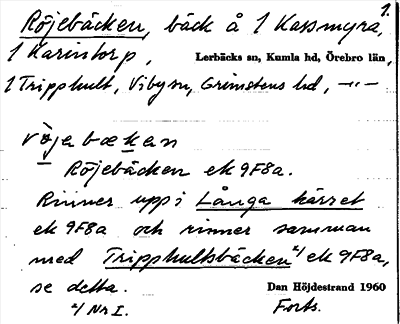 1.
Röjebäcken, bäck å 1 Kassmyra,
1 Karintorp, Lerbäcks sn, Kumla hd, Örebro län,
1 Tripphult, Viby sn, Grimstens hd, –"–
röjebæken
Röjebäcken ek 9F8a.
Rinner upp i Långa kärret
ek 9F8a och rinner samman
med Tripphultsbäcken ²/ ek 9F8a,
se detta. Dan Höjdestrand 1960
²/ Nr I. Forts.